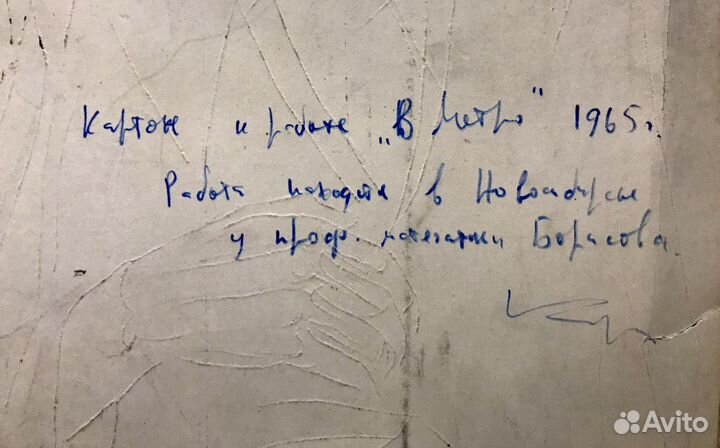 Картон к работе „В метро" 1965 г.
Работа находится в Новосибирске
у проф. математики Борисова.
Avito